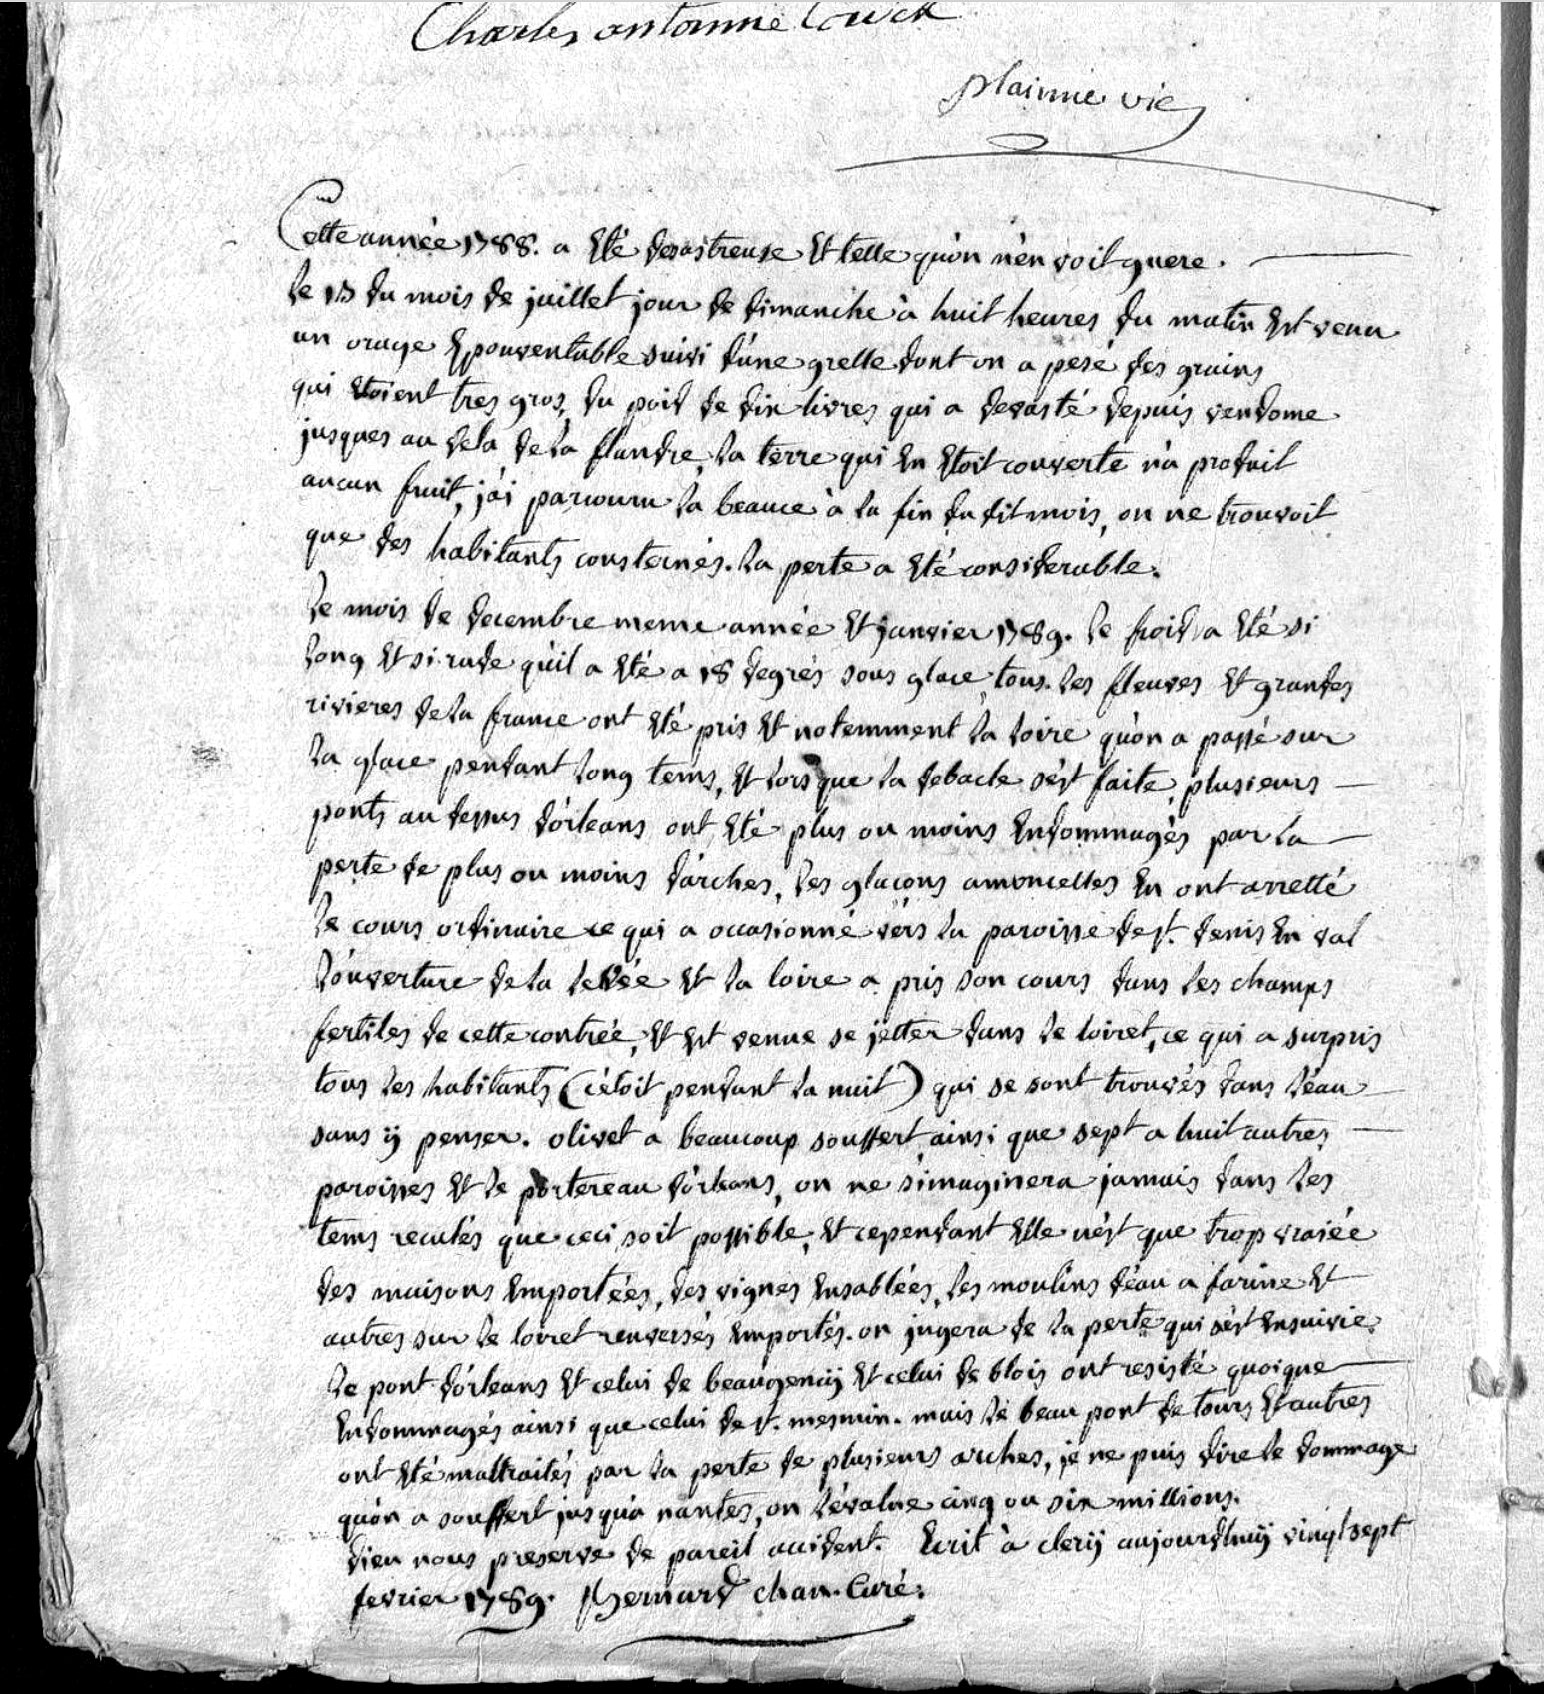 Charles antoinne
plainne vic
Cette année 1788. a été desastreuse et telle qu'on n'en voit guere.
le 13 du mois de juillet jour de dimanche à huit heures du matin est venu
un orage epouventable suivi d'une grelle dont on a pesé des grains
qui etoient tres gros, du poid de dix livres qui a devasté depuis vendome
jusques au dela de la flandre, la terre qui en etoit couverte n'a produit
aucun fruit, j'ai parcouru la beauce à la fin du dit mois, on ne trouvoit
que des habitants consternés. la perte a été considerable.
le mois de decembre meme année et janvier 1789. le froid a été si
long et si rude qu'il a été a 18 degrés sous glace, tous les fleuves et grandes
rivieres de la france ont été pris et notemment la loire qu'on a passé sur
la glace pendant long tems, et lors que la debacle s'est faite, plusieurs
ponts au dessus d'orleans ont été plus ou moins endommagés par la
perte de plus ou moins d'arches, les glaçons amoncelles en ont arretté
le cours ordinaire ce qui a occasionné vers la paroisse de st. denis en val
l'ouverture de la levée et la loire a pris son cours dans les champs
fertiles de cette contrée, et est venue se jetter dans le loiret, ce qui a surpris
tous les habitants (c'étoit pendant la nuit) qui se sont trouvés dans l'eau
sans ÿ penser. olivet a beaucoup souffert ainsi que sept a huit autres
paroisses et le portereau d'orleans, on ne s'imaginera jamais dans les
tems reculés que ceci soit possible, et cependant elle n'est que trop vraiée
des maisons emportées, des vignes ensablées, les moulins d'eau a farine et
autres sur le loiret renversés emportés. on jugera de la perte qui s'est ensuivie.
le pont d'orleans et celui de beaugencÿ et celui de blois ont resisté quoique
endommagés ainsi que celui de st. mesmin. mais le beau pont de tours et autres
ont été maltraités par la perte de plusieurs arches, je ne puis dire le dommage
qu'on a souffert jusqu'a nantes, on l'évalue cinq ou six millions.
dieu nous preserve de pareil accident. Ecrit à clerÿ aujourdhuÿ vingt sept
fevrier 1789. Bernard chan. Curé.